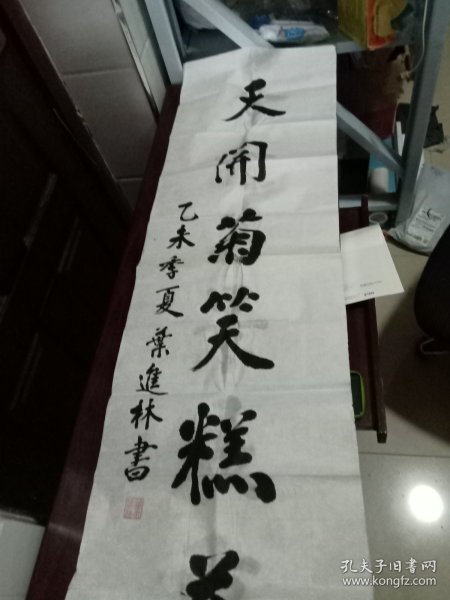 天開菊笑糕
乙未季夏葉進林書
孔夫子旧书网
www.kongfz.com